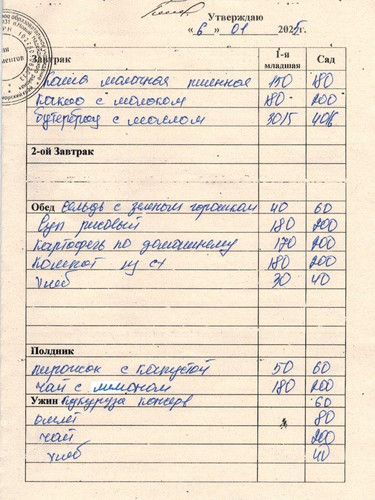 Утверждаю
« 6 » 01 2025г.
Завтрак 1-я младшая Сад
Каша молочная пшенная 150 180
какао с молоком 180 200
бутерброд с маслом 30/5 40/6
2-ой Завтрак
Обед Сельдь с зеленым горошком 40 60
Суп рисовый 180 200
картофель по домашнему 170 200
компот из с/ 180 200
хлеб 30 40
Полдник
пирожок с капустой 50 60
чай с лимоном 180 200
Ужин Кукуруза консерв 60
омлет 80
чай 200
хлеб 40